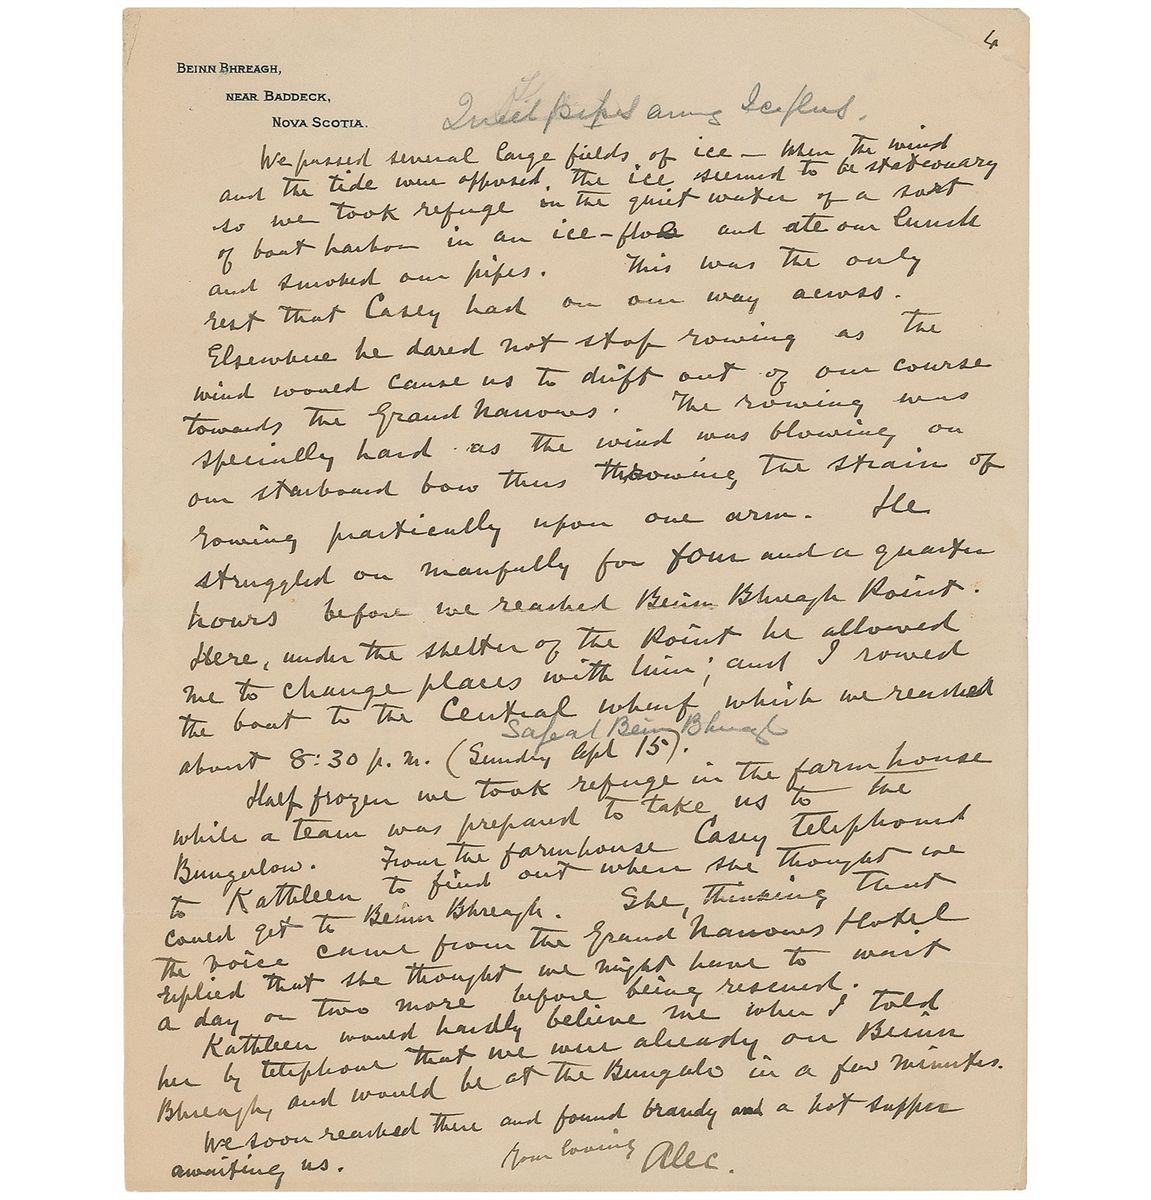 4
BEINN BHREAGH,
NEAR BADDECK,
NOVA SCOTIA.
Quiet pipes among Iceflus.
We passed several large fields of ice — When the wind
and the tide were opposed, the ice seemed to be stationary
so we took refuge in the quiet water of a sort
of boat harbor in an ice-floe and ate our lunch
and smoked our pipes. This was the only
rest that Casey had on our way across.
Elsewhere he dared not stop rowing as the
wind would cause us to drift out of our course
towards the Grand Narrows. The rowing was
specially hard as the wind was blowing on
our starboard bow thus throwing the strain of
rowing practically upon one arm. He
struggled on manfully for four and a quarter
hours before we reached Beinn Bhreagh Point.
Here, under the shelter of the Point he allowed
me to change places with him; and I rowed
the boat to the Central wharf which we reached
Safe at Beinn Bhreagh
about 8:30 p.m. (Sunday Apl 15).
Half frozen we took refuge in the farm house
while a team was prepared to take us to the
Bungalow. From the farmhouse Casey telephoned
to Kathleen to find out when she thought we
could get to Beinn Bhreagh. She, thinking that
the voice came from the Grand Narrows Hotel
replied that she thought we might have to wait
a day or two more before being rescued.
Kathleen would hardly believe me when I told
her by telephone that we were already on Beinn
Bhreagh, and would be at the Bungalo in a few minutes.
We soon reached there and found brandy and a hot supper
awaiting us.
Your loving Alec.